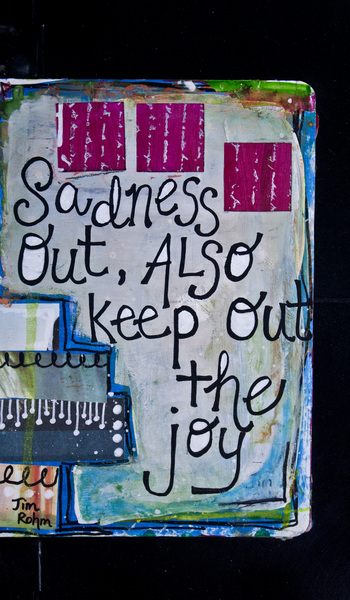 Sadness
out, ALSO
keep out
the
joy
Jim
Rohm